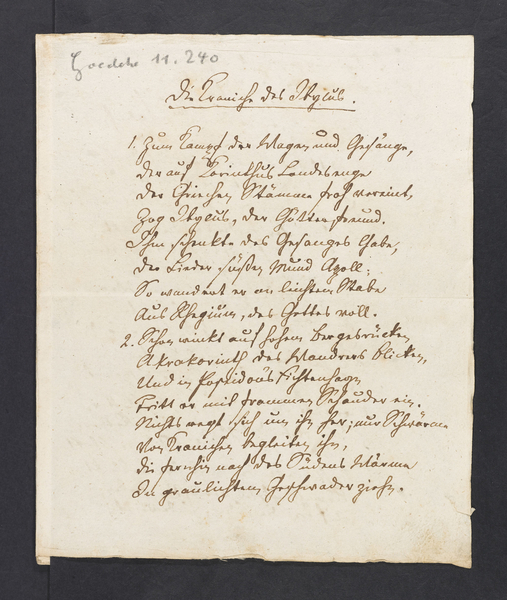 Goedeke 11. 240
Die Kraniche des Ibykus.
1. Zum Kampf der Wagen und Gesänge,
der auf Korinthus Landesenge
der Griechen Stämme froh vereint,
Zog Ibykus, der Götterfreund.
Ihm schenkte des Gesanges Gabe,
der Lieder süßen Mund Apoll;
So wandert er an leichtem Stabe
Aus Rhegium, des Gottes voll.
2. Schon winkt auf hohem Bergesrücken
Akrokorinth des Wandrers Blicken,
Und in Poseidons Fichtenhayn
Tritt er mit frommem Schauder ein.
Nichts regt sich um ihn her; nur Schwärme
Von Kranichen begleiten ihn,
die fernhin nach des Südens Wärme
In graulichtem Geschwader ziehn.